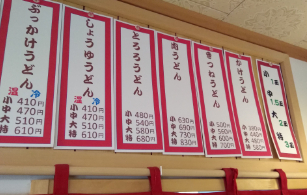 ぶっかけうどん
温 冷
小 410円
中 470円
大 510円
特 610円
しょうゆうどん
温 冷
小 410円
中 470円
大 510円
特 610円
とろろうどん
小 480円
中 540円
大 580円
特 680円
肉うどん
小 630円
中 690円
大 730円
特 830円
きつねうどん
小 500円
中 560円
大 600円
特 700円
かけうどん
小 1玉
中 1.5玉
大 2玉
特 3玉